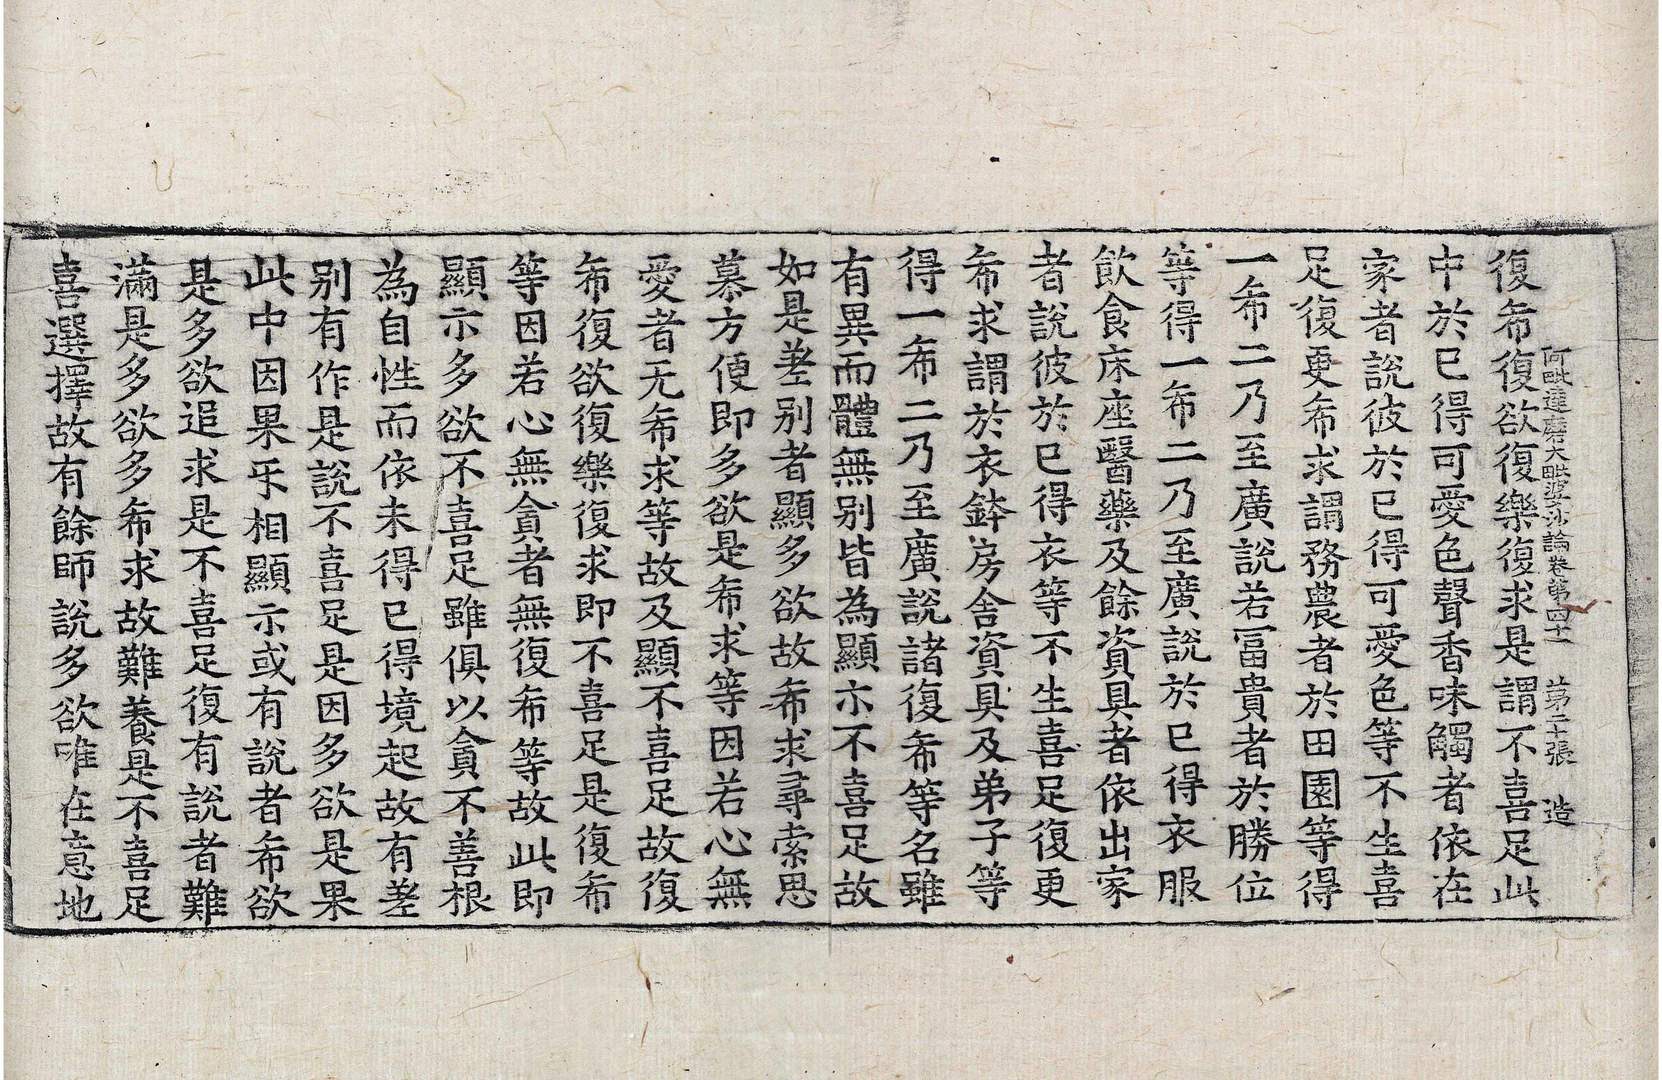 復希復欲復樂復求是謂不喜足此
阿毗達磨大毗婆沙論卷第四十一 第二十張 造
中於已得可愛色聲香味觸者依在
家者說彼於已得可愛色等不生喜
足復更希求謂務農者於田園等得
一希二乃至廣說若冨貴者於勝位
等得一希二乃至廣說於已得衣服
飲食床座醫藥及餘資具者依出家
者說彼於已得衣等不生喜足復更
希求謂於衣鉢房舍資具及弟子等
得一希二乃至廣說諸復希等名雖
有異而體無别皆為顯示不喜足故
如是差别者顯多欲故希求尋索思
慕方便即多欲是希求等因若心無
愛者无希求等故及顯不喜足故復
希復欲復樂復求即不喜足是復希
等因若心無貪者無復希等故此即
顯示多欲不喜足雖俱以貪不善根
為自性而依未得已得境起故有差
别有作是說不喜足是因多欲是果
此中因果㸦相顯示或有說者希欲
是多欲追求是不喜足復有說者難
滿是多欲多希求故難養是不喜足
喜選擇故有餘師說多欲唯在意地